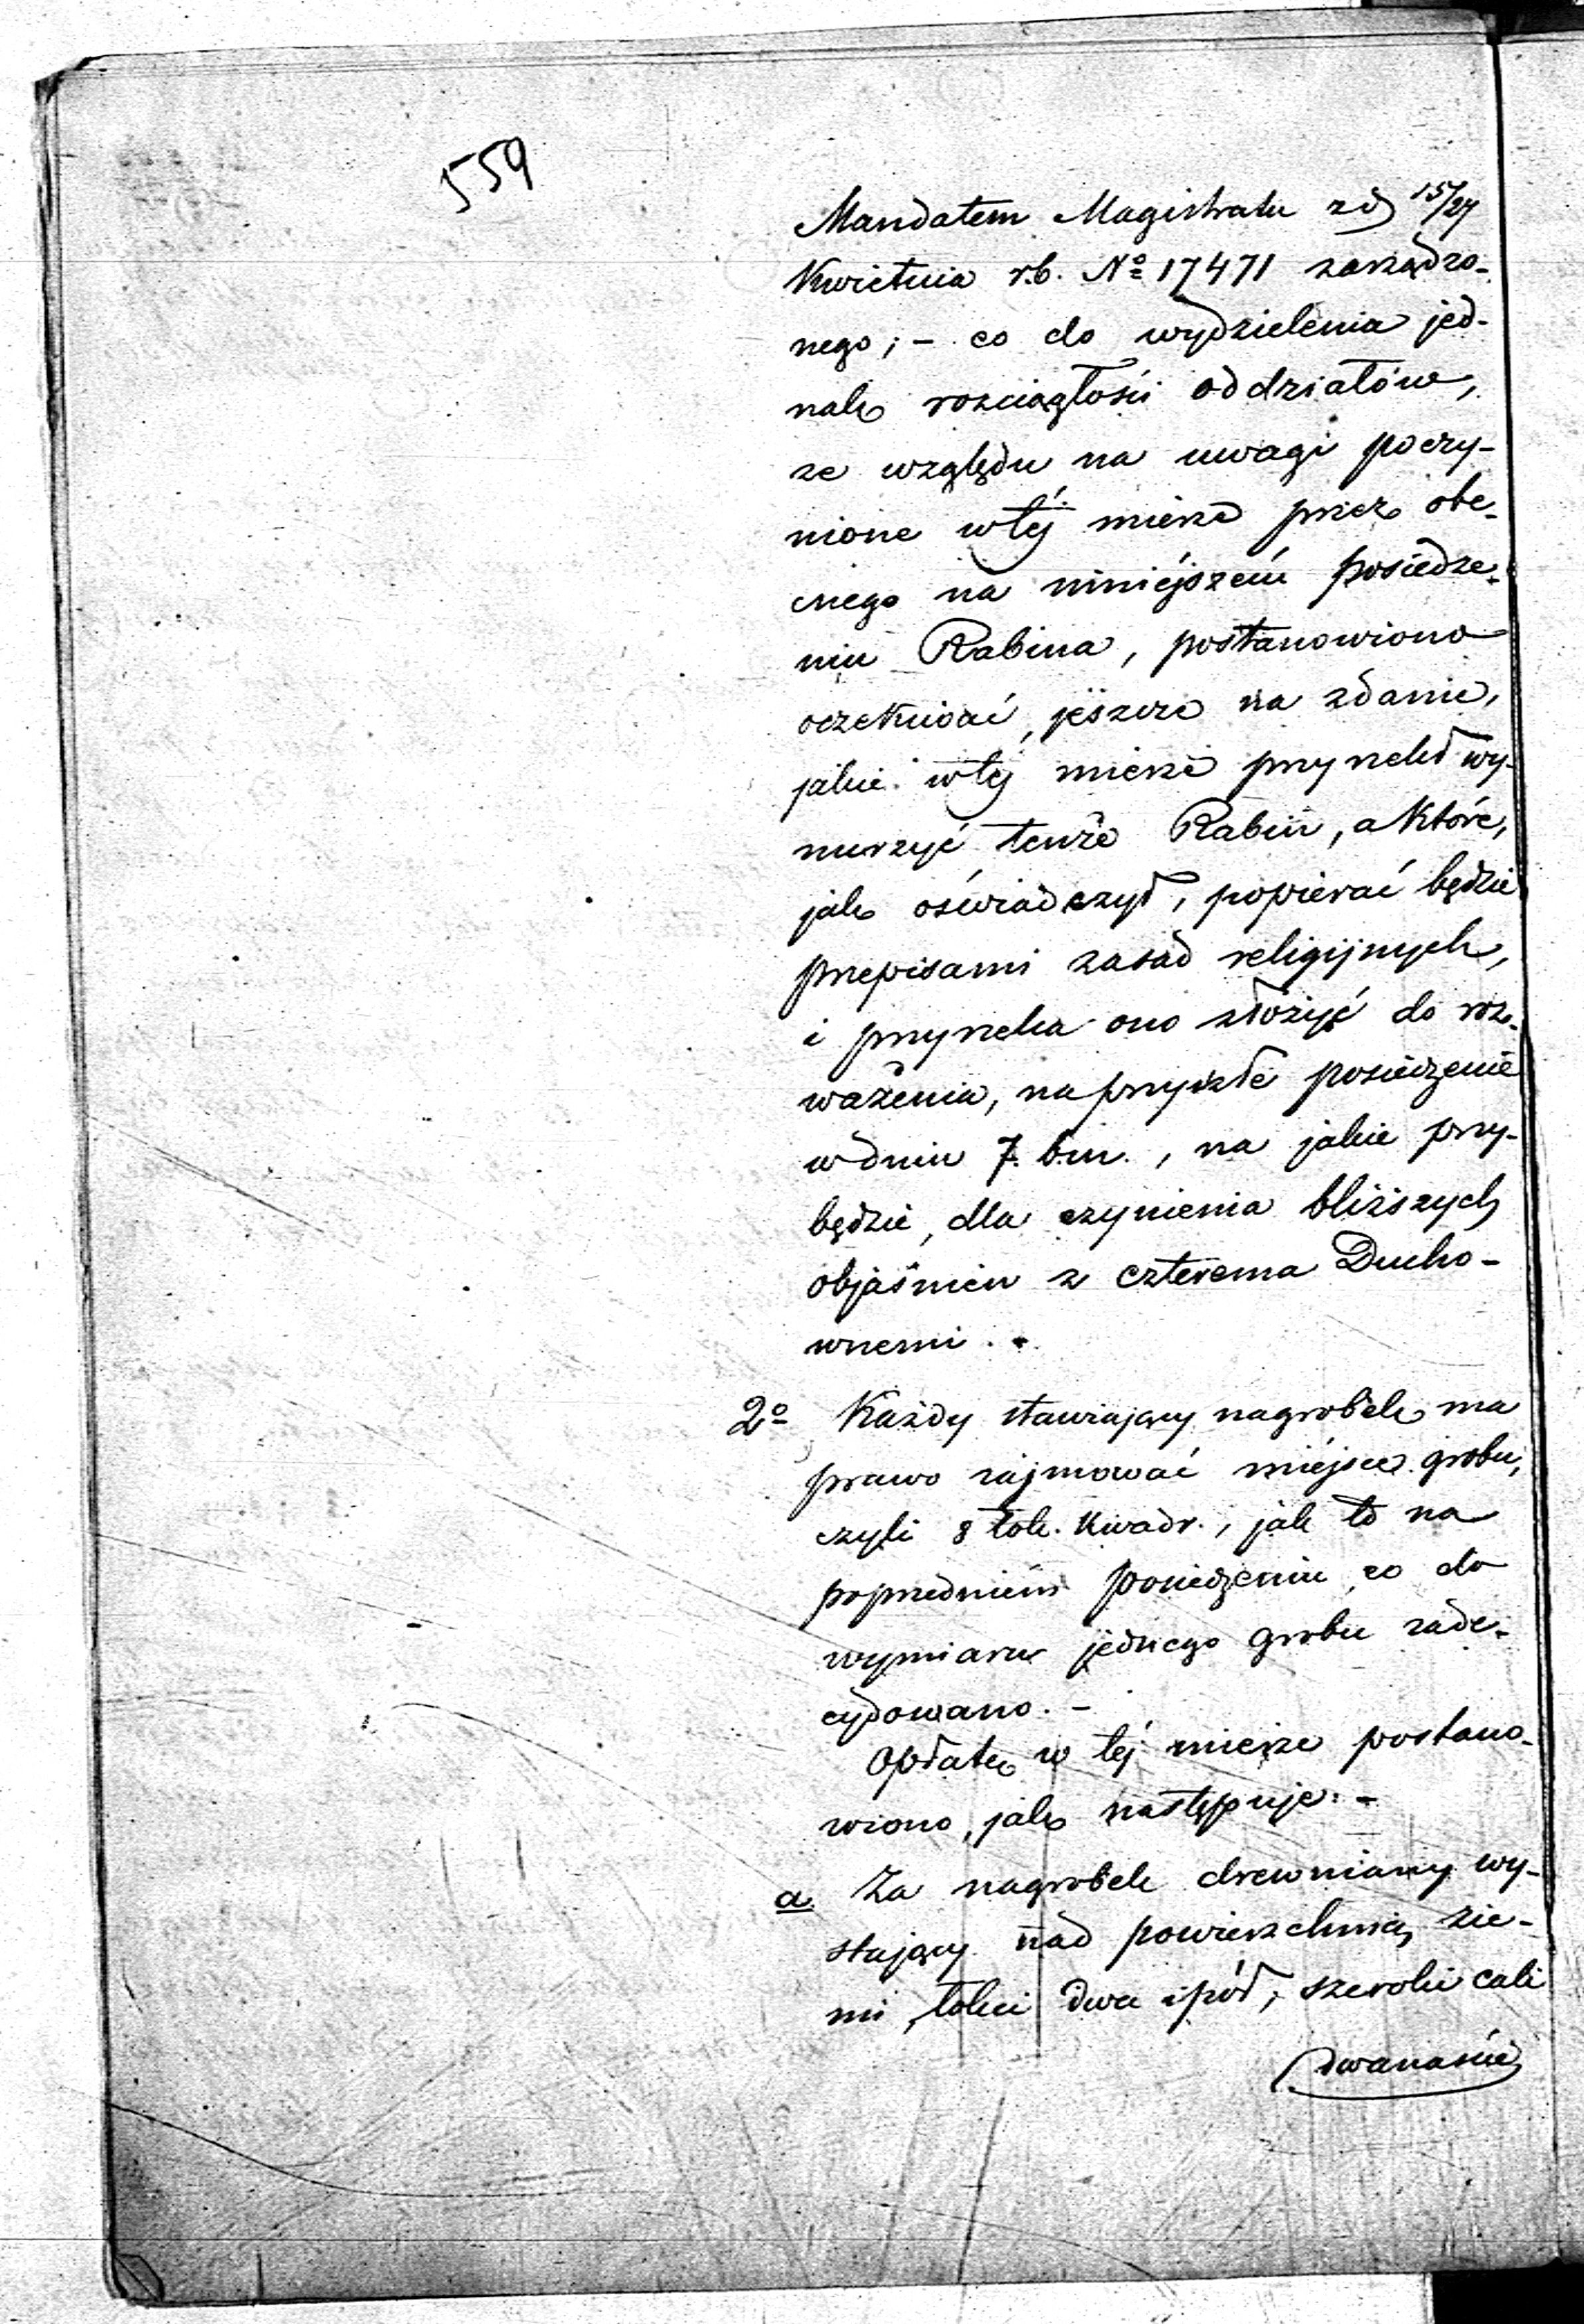 559
Mandatem Magistratu zd 15/27
Kwietnia r.b. No 17471 zarządzo-
nego; - co do wydzielenia jed-
nak rozciągłości oddziałów,
ze względu na uwagi poczy-
nione w téj mierze przez obe-
cnego na niniéjszém posiedze-
niu Rabina, postanowiono
oczekiwać jeszcze na zdanie,
jakie w téj mierze przyrzekł wy-
nurzyć tenże Rabin, a które,
jak oświadczył, popierać będzie
przepisami zasad religijnych,
i przyrzeka ono złożyć do roz-
ważenia, na przyszłe posiedzenie
w dniu 7. b.m., na jakie przy-
będzie, dla czynienia bliższych
objaśnień z czterema Ducho-
wnemi. -
2o Każdy stawiający nagrobek ma
prawo zajmować miéjsce grobu,
czyli 8 łok. kwadr., jak to na
poprzedniém posiedzeniu co do
wymiaru jednego grobu zade-
cydowano. -
Opłatę w téj mierze postano-
wiono, jak następuje: -
a. Za nagrobek drewniany wy-
stający nad powierzchnią zie-
mi, łokci dwa i pół, szeroki cali
dwanaście